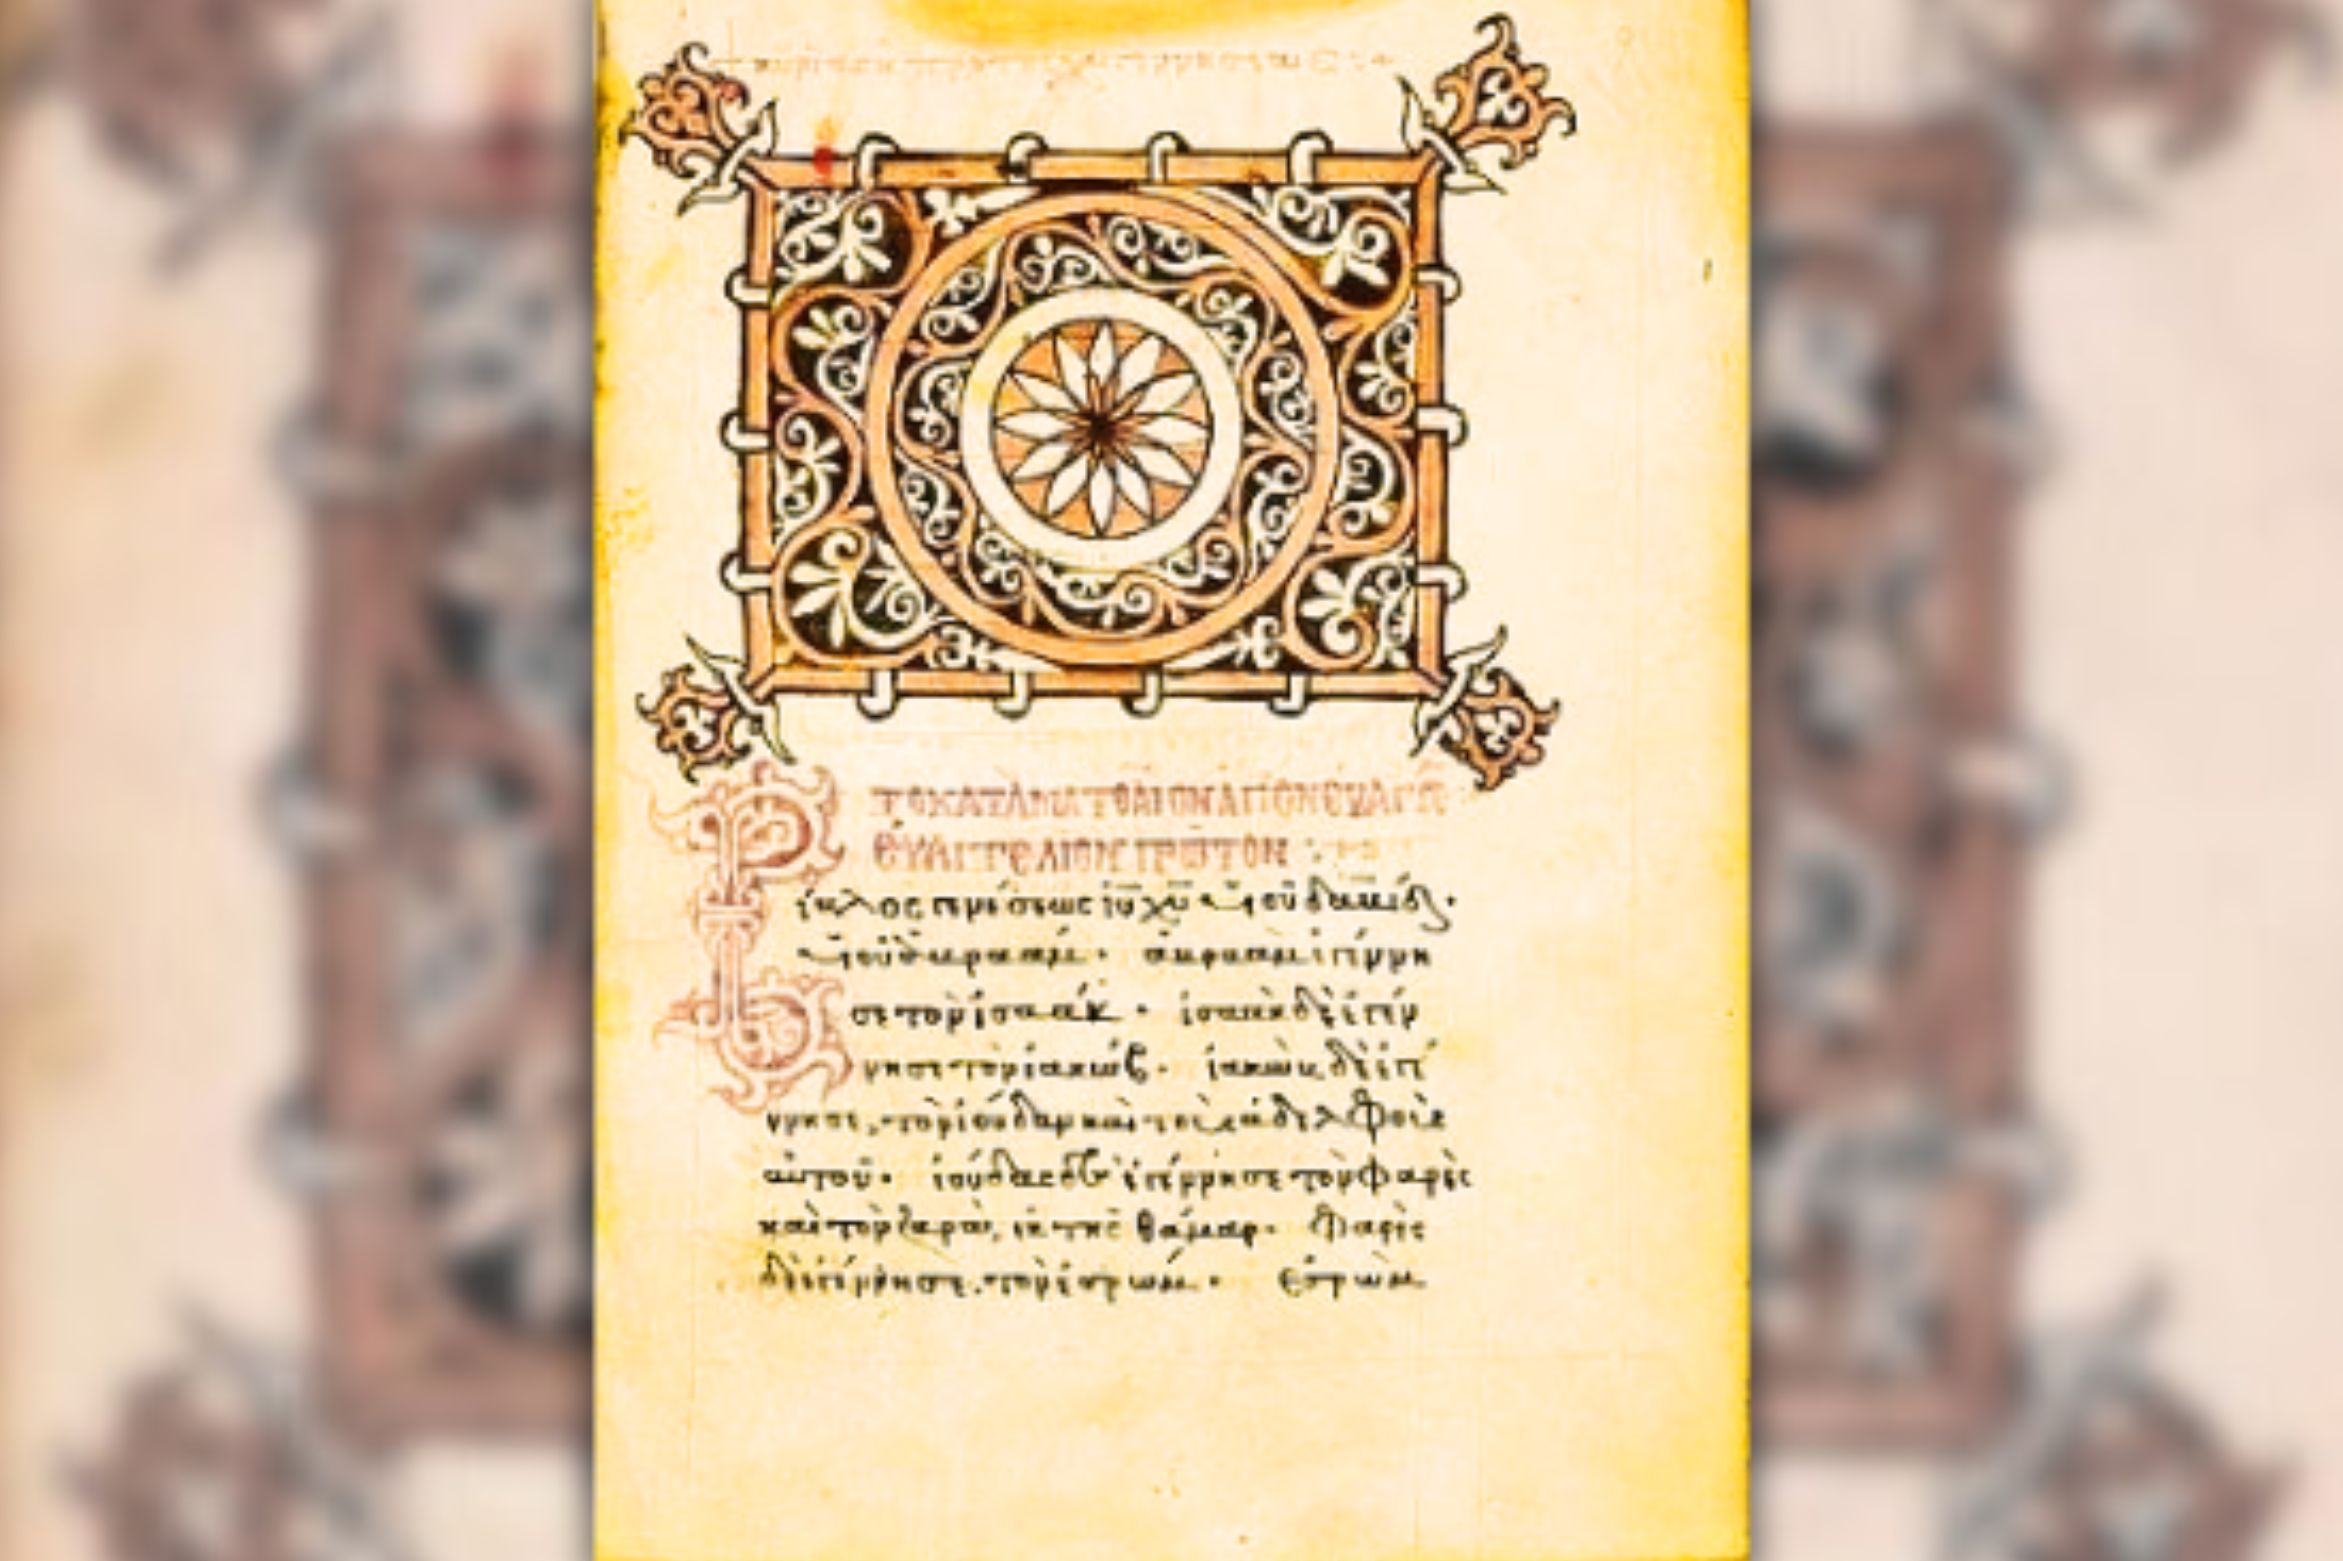 ΤΟ ΚΑΤΑ ΜΑΤΘΑΙΟΝ ΑΓΙΟΝ ΕΥΑΓΓ
ΕΥΑΓΓΕΛΙΟΝ ΠΡΩΤΟΝ
Βίβλος γενέσεως ιυ χυ υιοῦ δαυίδ·
υιοῦ ἀβραάμ· ἀβραὰμ ἐγέννη
σε τὸν ἰσαάκ· ἰσαὰκ δὲ ἐγέν
νησε τὸν ἰακώβ· ἰακὼβ δὲ ἐγέ
ννησε τὸν ἰούδαν καὶ τοὺς ἀδελφοὺς
αὐτοῦ· ἰούδας δὲ ἐγέννησε τὸν φαρὲς
καὶ τὸν ζαρὰ, ἐκ τῆς θάμαρ· φαρὲς
δὲ ἐγέννησε τὸν ἐσρώμ· ἐσρὼμ